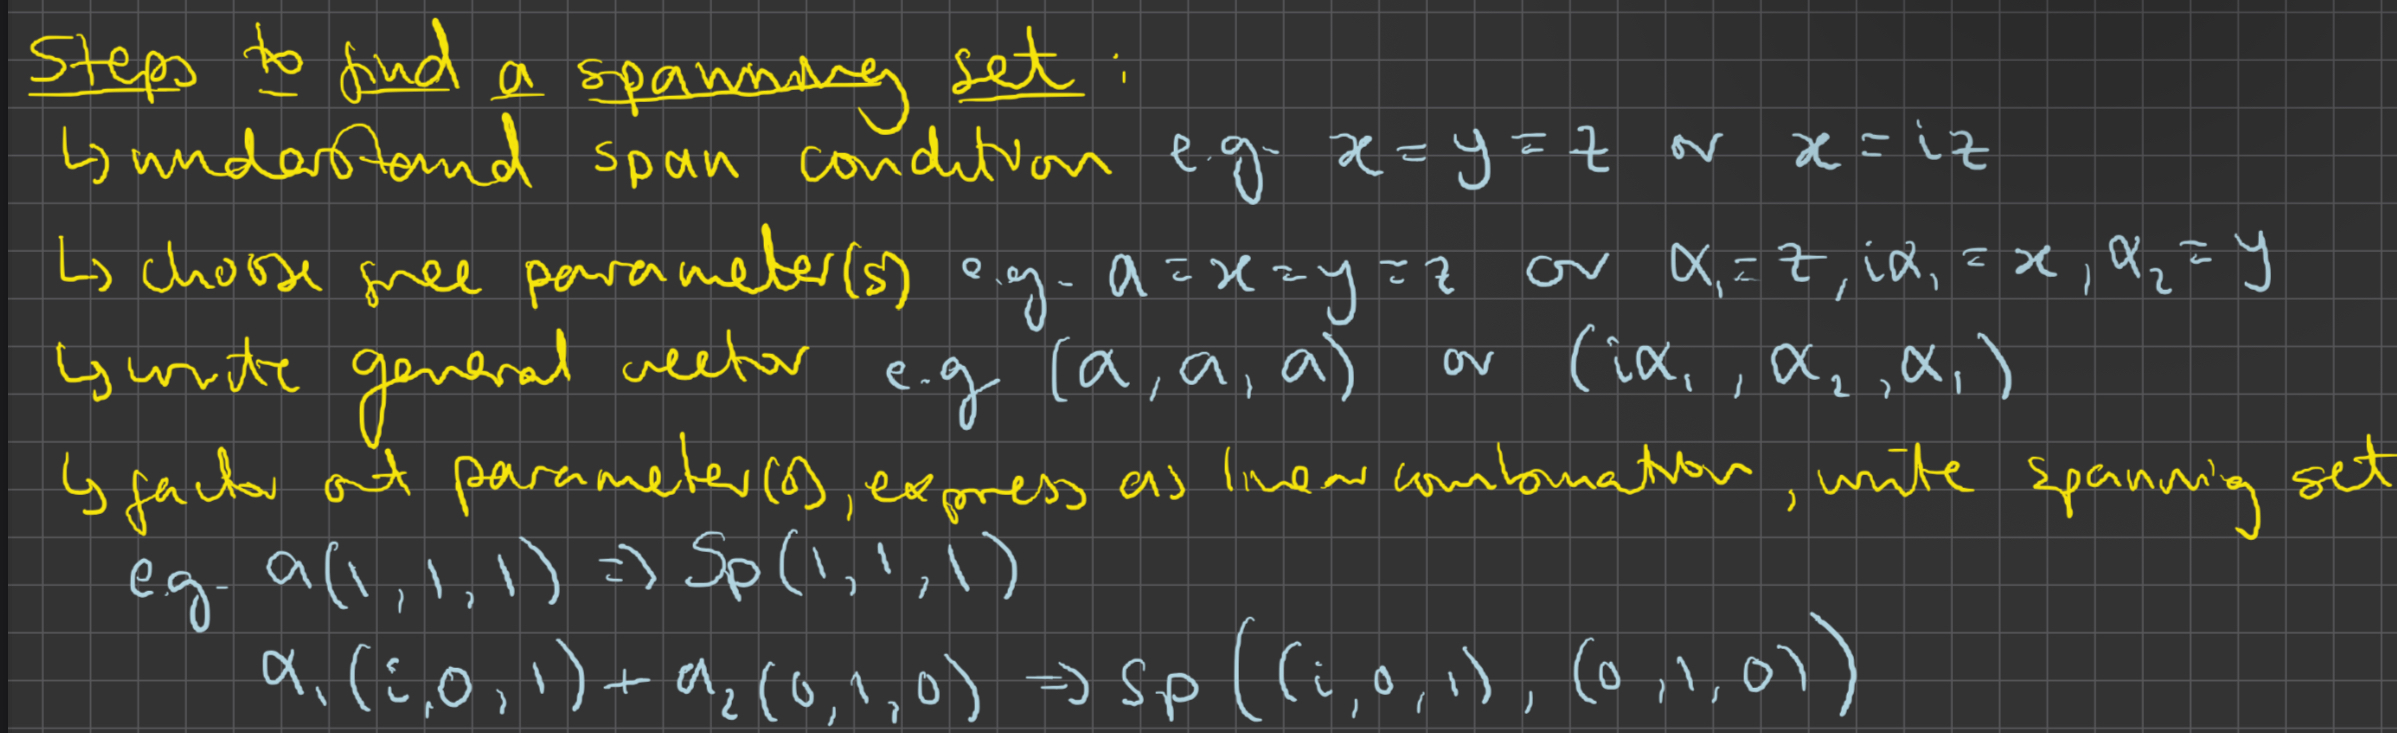 Steps to find a spanning set :
↳ understand span condition e.g. x = y = z or x = iz
↳ choose free parameter(s) e.g. a = x = y = z or α₁ = z, iα₁ = x, α₂ = y
↳ write general vector e.g (a, a, a) or (iα₁, α₂, α₁)
↳ factor out parameter(s), express as linear combination, write spanning set
e.g. a(1, 1, 1) => Sp(1, 1, 1)
α₁(i, 0, 1) + α₂(0, 1, 0) => Sp((i, 0, 1), (0, 1, 0))